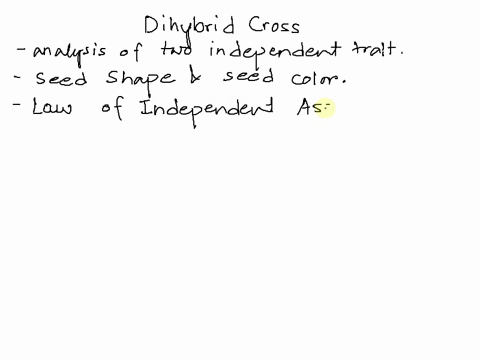 Dihybrid Cross
- analysis of two independent trait.
- Seed Shape & seed color.
- Law of Independent As